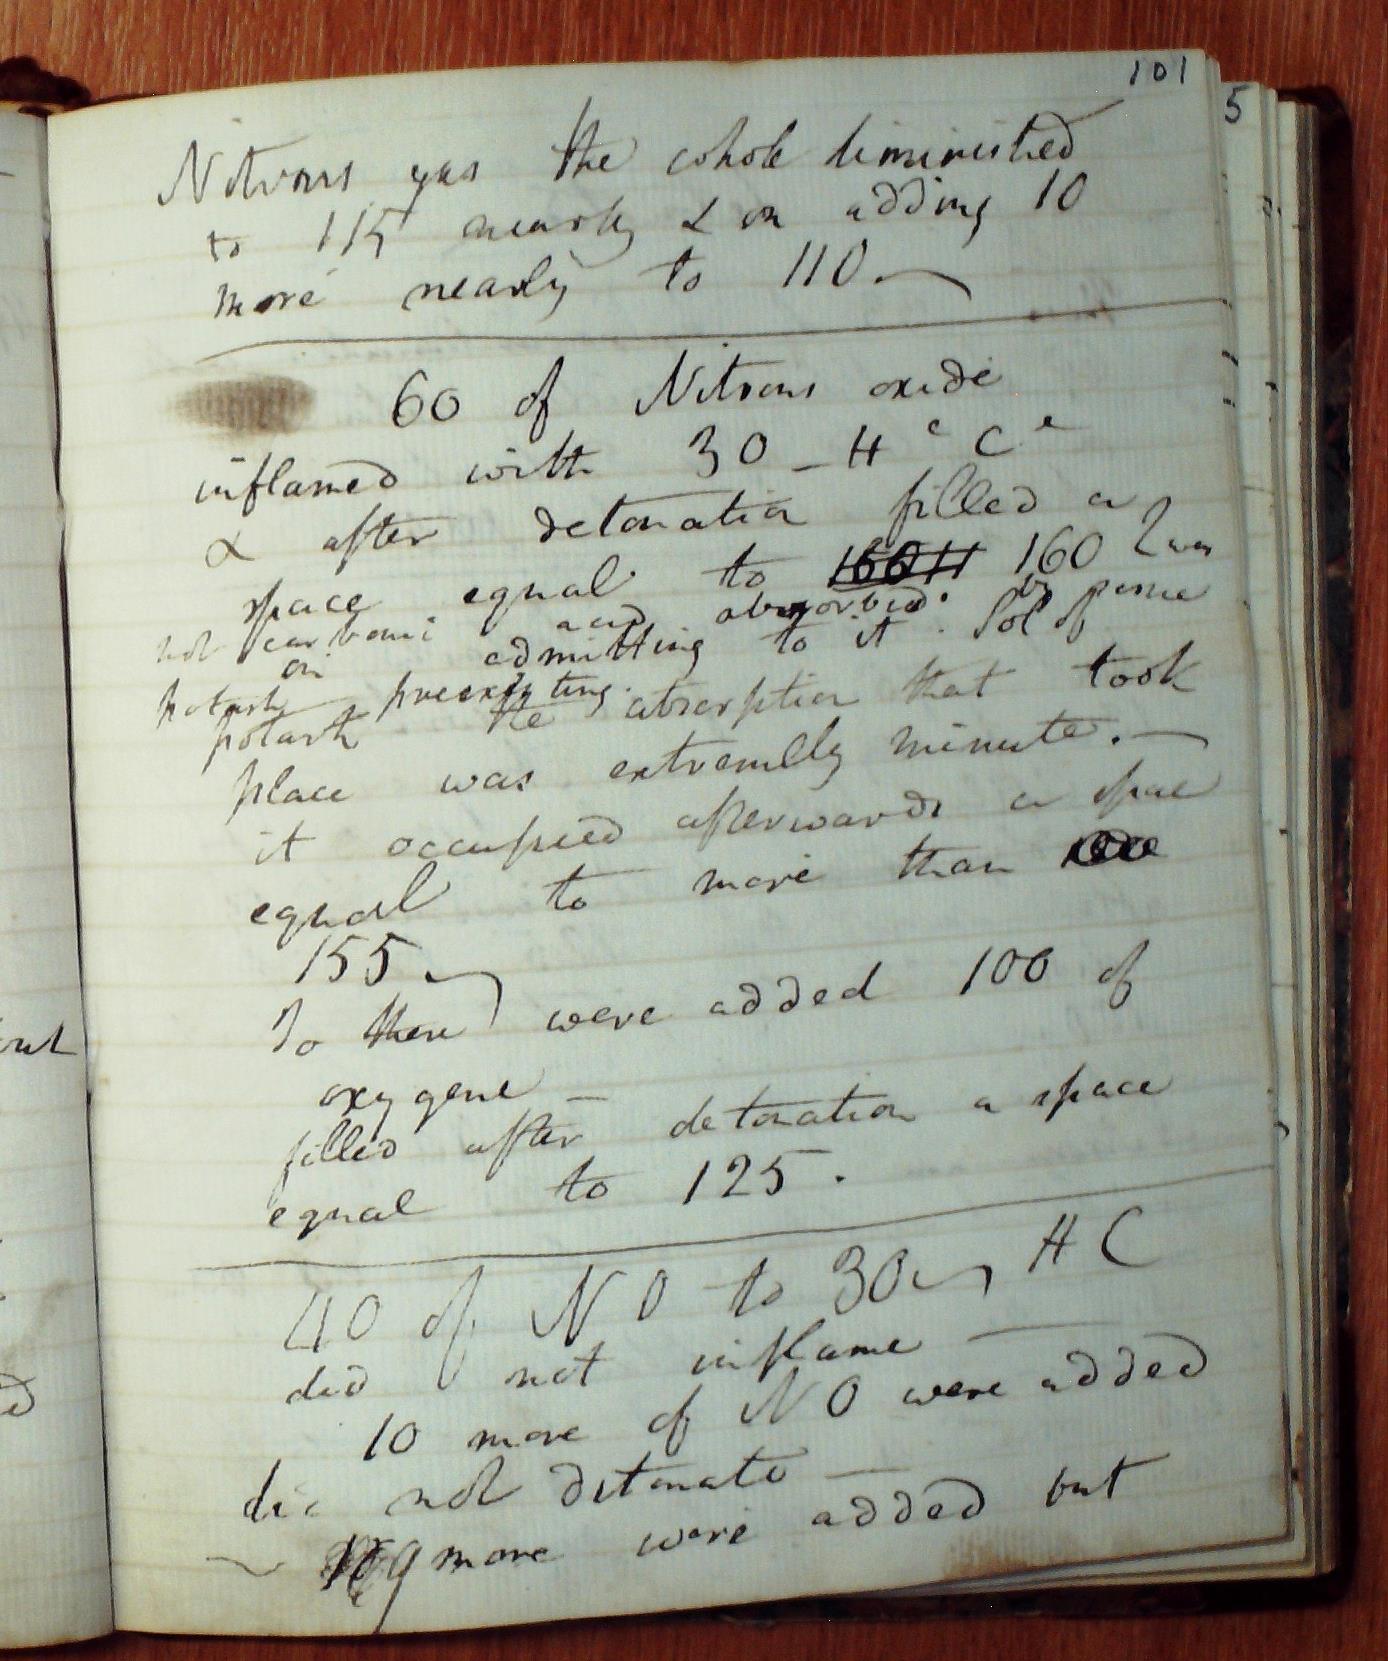 101
5
Nitrous gas the whole diminished
to 115 nearly & on adding 10
more nearly to 110.
60 of Nitrous oxide
inflamed with 30 - H c C e
& after detonation filled a
space equal to 160 was
not carbonic acid absorbed by some
on admitting to it. Sol of
potash preexisting.
potash the absorption that took
place was extremelly minute. —
it occupied afterwards a space
equal to more than
155
To these were added 100 of
oxygene —
filled after detonation a space
equal to 125.
40 of NO to 30 HC
did not inflame —
10 more of NO were added
did not detonate —
more were added but